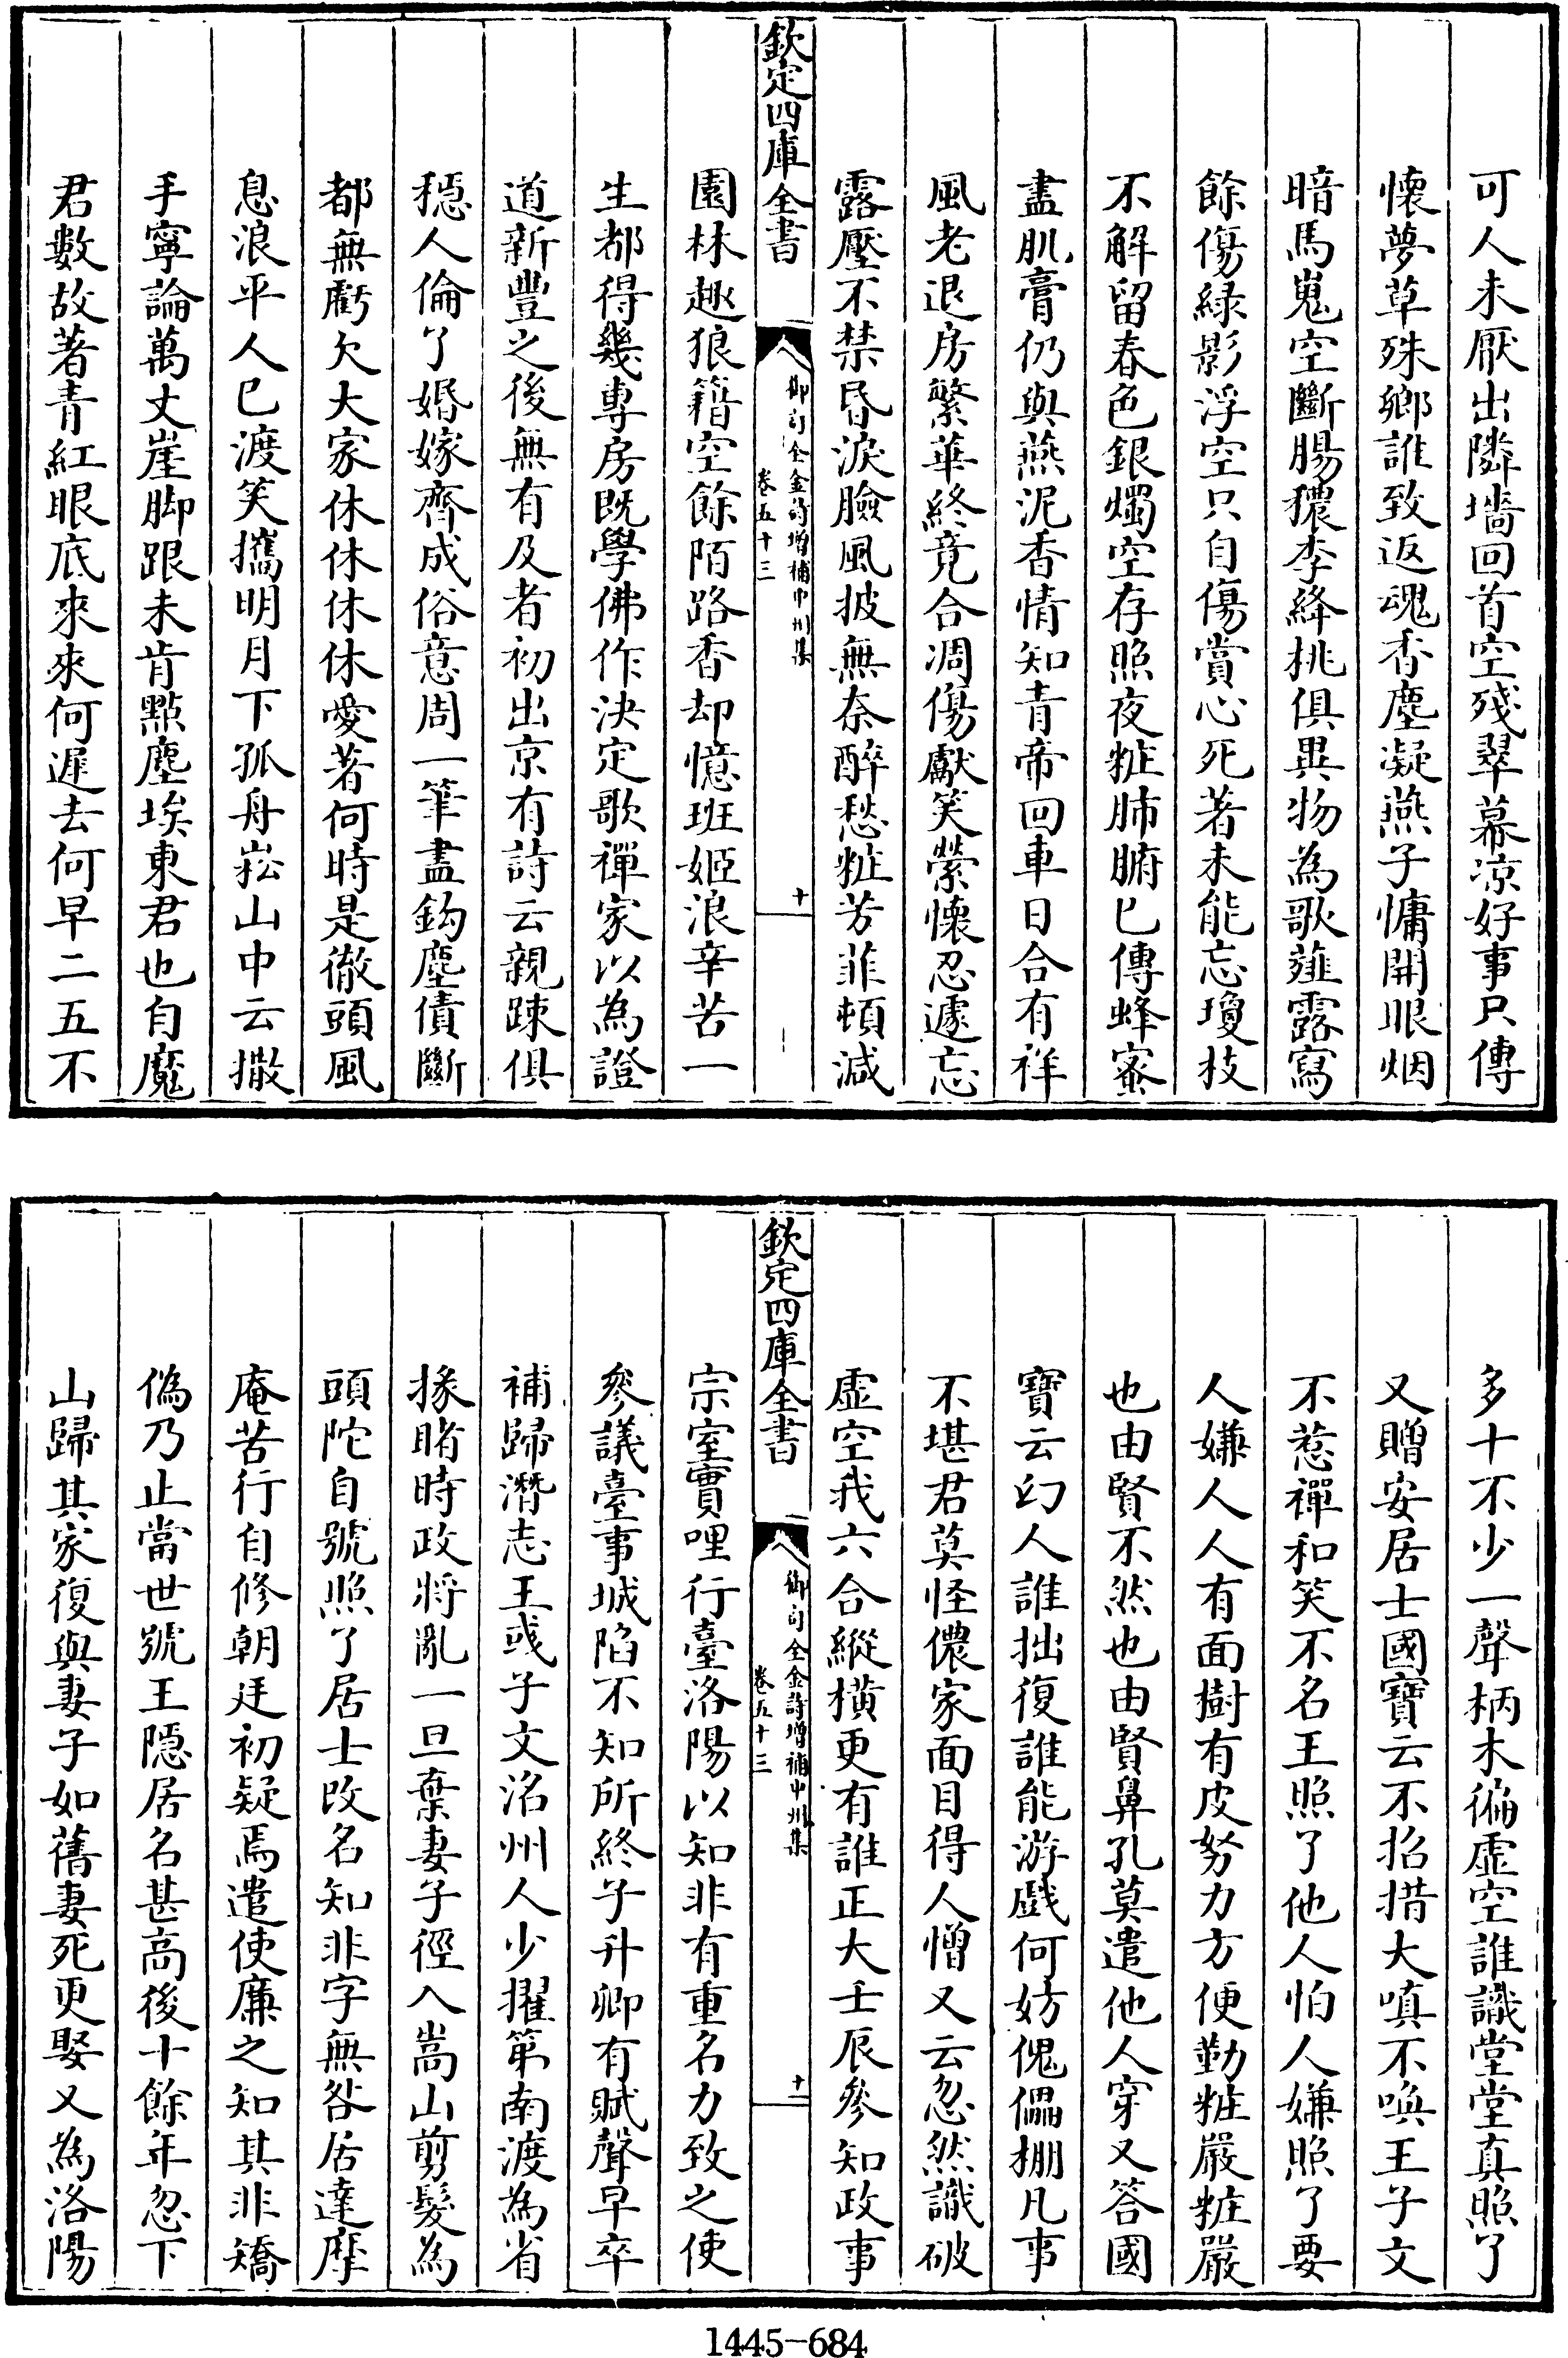 可人未厭出隣墻回首空殘翠幕凉好事只傳
懐夢草殊鄉誰致返魂香塵凝燕子慵開眼烟
暗馬嵬空斷腸穠李絳桃俱異物為歌薤露寫
餘傷緑影浮空只自傷賞心死著未能忘瓊枝
不解留春色銀燭空存照夜粧肺腑已傳蜂蜜
盡肌膏仍與燕泥香情知青帝回車日合有祥
風老退房繁華終竟合凋傷獻笑縈懐忍遽忘
露壓不禁昏淚臉風披無奈醉愁粧芳菲頓減
欽定四庫全書
御訂全金詩增補中州集
卷五十三
十
園林趣狼籍空餘陌路香却憶班姬浪辛苦一
生都得幾專房既學佛作決定歌禪家以為證
道新豐之後無有及者初出京有詩云親踈俱
穩人倫了婚嫁齊成俗意周一筆盡鈎塵債斷
都無虧欠大家休休休休休愛著何時是徹頭風
息浪平人已渡笑攜明月下孤舟崧山中云撒
手寧論萬丈崖脚跟未肯點塵埃東君也自魔
君數故著青紅眼底來來何遲去何早二五不
多十不少一聲柄木徧虚空誰識堂堂真照了
又贈安居士國寶云不招措大嗔不喚王子文
不惹禪和笑不名王照了他人怕人嫌照了要
人嫌人人有面樹有皮努力方便勤粧嚴粧嚴
也由賢不然也由賢鼻孔莫遣他人穿又答國
寶云幻人誰拙復誰能游戲何妨傀儡棚凡事
不堪君莫怪儂家面目得人憎又云忽然識破
虚空我六合縱横更有誰正大壬辰參知政事
欽定四庫全書
御訂全金詩增補中州集
卷五十三
十一
宗室實哩行臺洛陽以知非有重名力致之使
參議臺事城陷不知所終子升卿有賦聲早卒
補歸潛志王彧子文洺州人少擢第南渡為省
掾睹時政將亂一旦棄妻子徑入嵩山剪髮為
頭陀自號照了居士改名知非字無咎居達摩
庵苦行自修朝廷初疑焉遣使廉之知其非矯
偽乃止當世號王隱居名甚高後十餘年忽下
山歸其家復與妻子如舊妻死更娶又為洛陽
1445-684